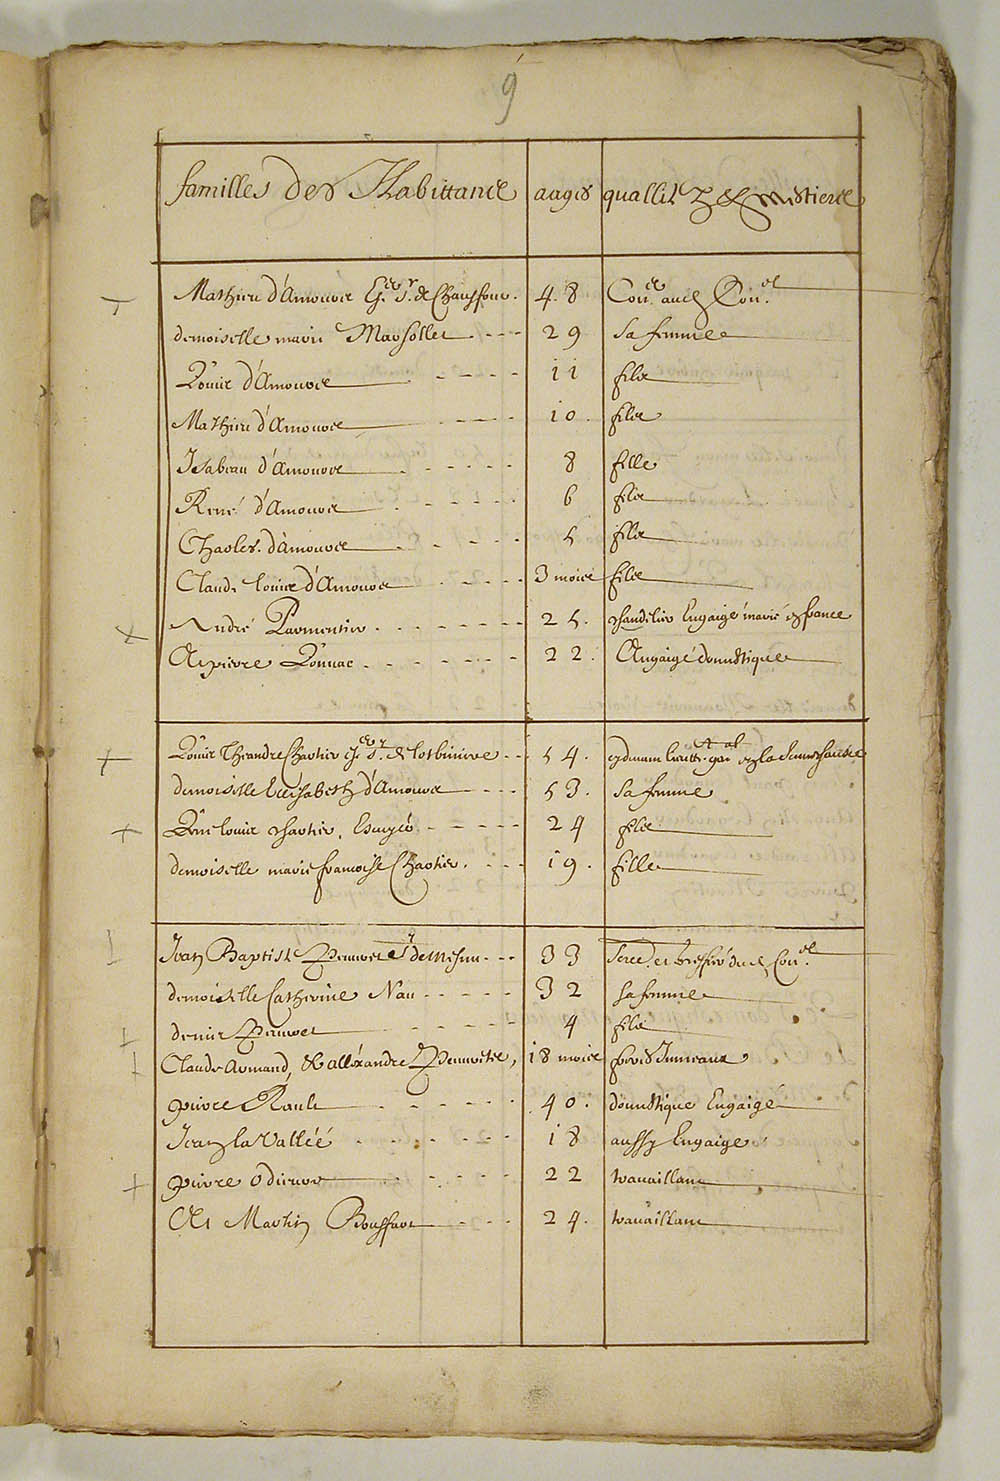 9
familles des Habittans aages quallitez & mestiers
Mathieu d'Amours Esr. Sr. de Chauffour. 48 Conr. au Con.el
demoiselle marie Marsollet 29 sa femme
Louis d'Amours 11 filz
Mathieu d'Amours 10. filz
Isabeau d'Amours 8 fille
René d'Amours 6 filz
Charles. d'Amours 5 filz
Claude louis d'Amours 3 mois filz
André Parmentier 25. chandelier Engaigé marié en france
Et pierre Lonnac 22. Engaigé domestique
Louis Theandre Chartier Esr. Sr. de Lotbiniere 54. lieutt. gnal en la senechaussée
demoiselle Elizabeth d'Amours 53. sa femme
René louis chartier, Escuyer 24 filz
demoiselle marie francoise Chartier. 19. fille
Jean Baptiste Peuvret Sr demesnu 33 Secre. et greffier dud. Con.el
demoiselle Catherine Nau 32 sa femme
denis Peuvret 4 filz
Claude armand, & alléxandre Peuvretz, 18 mois freres Jumeaux
pierre Raule 40. domestique Engaigé
Jean la Vallée 18 aussy Engaigé
pierre odierne 22 travaillant
Et Martin Bouffart 24. travaillant